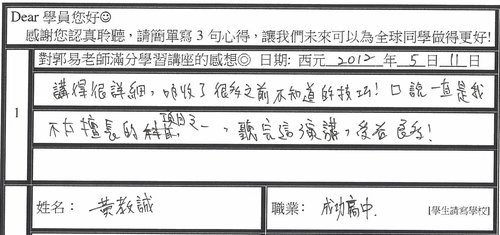 Dear 學員您好☺
感謝您認真聆聽，請簡單寫 3 句心得，讓我們未來可以為全球同學做得更好!
對郭易老師滿分學習講座的感想◎ 日期: 西元 2012 年 5 月 11 日
1
講得很詳細，吸收了很多之前不知道的技巧! 口說一直是我
不太擅長的項目之一，聽完這演講，受益良多!
姓名: 黃教誠 職業: 成功高中. [學生請寫學校]